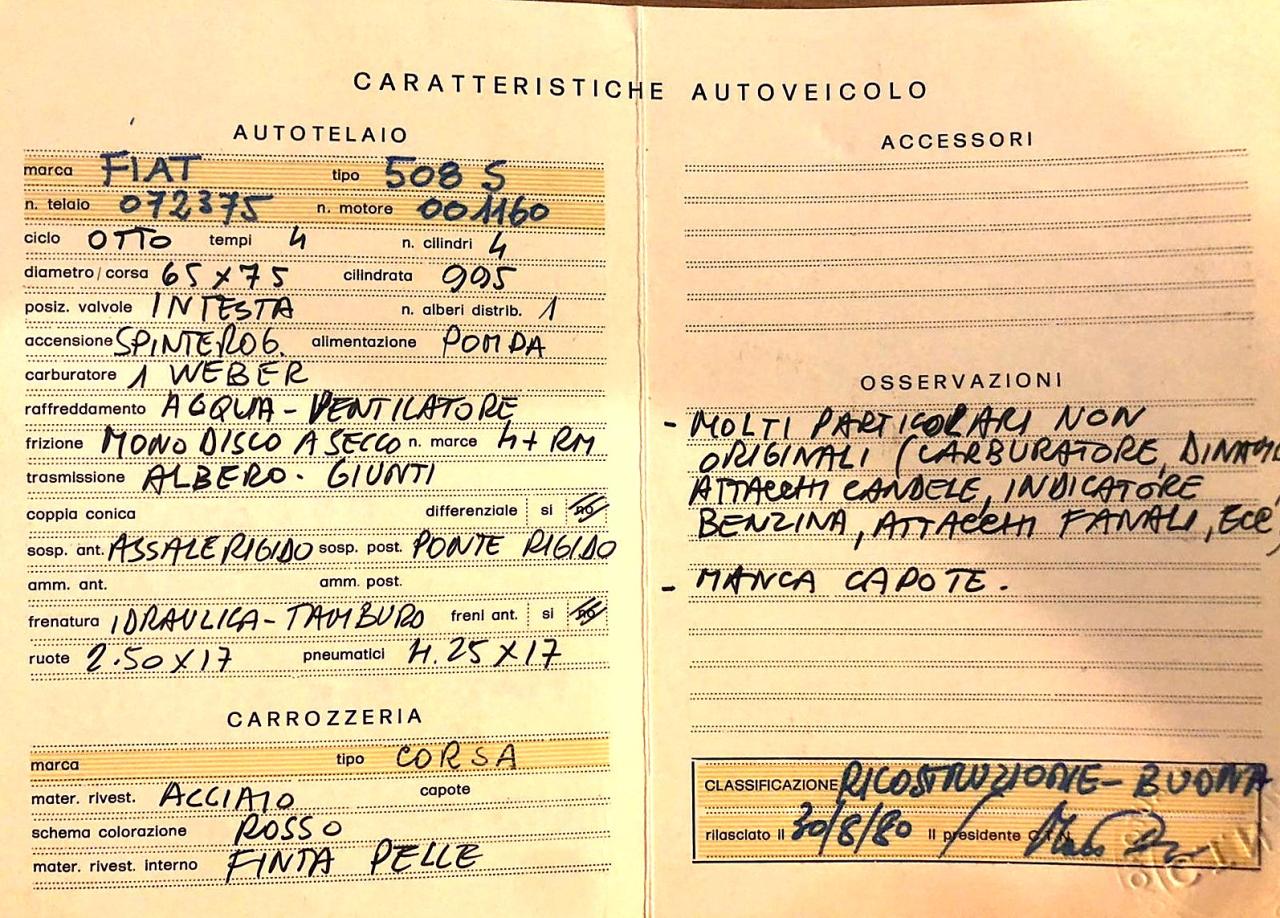 CARATTERISTICHE AUTOVEICOLO
AUTOTELAIO
marca FIAT tipo 508 S
n. telaio 072375 n. motore 001160
ciclo OTTO tempi 4 n. cilindri 4
diametro/corsa 65 x 75 cilindrata 995
posiz. valvole IN TESTA n. alberi distrib. 1
accensione SPINTEROG. alimentazione POMPA
carburatore 1 WEBER
raffreddamento ACQUA - VENTILATORE
frizione MONO DISCO A SECCO n. marce 4 + RM
trasmissione ALBERO - GIUNTI
coppia conica differenziale si no
sosp. ant. ASSALE RIGIDO sosp. post. PONTE RIGIDO
amm. ant. amm. post.
frenatura IDRAULICA - TAMBURO freni ant. si no
ruote 2.50 X 17 pneumatici 4.25 X 17
CARROZZERIA
marca tipo CORSA
mater. rivest. ACCIAIO capote
schema colorazione ROSSO
mater. rivest. interno FINTA PELLE
ACCESSORI
OSSERVAZIONI
- MOLTI PARTICOLARI NON
ORIGINALI (CARBURATORE, DINAMO
ATTACCHI CANDELE, INDICATORE
BENZINA, ATTACCHI FANALI, ECC,
- MANCA CAPOTE.
CLASSIFICAZIONE RICOSTRUZIONE - BUONA
rilasciato il 30/8/80 Il presidente C.T.N.